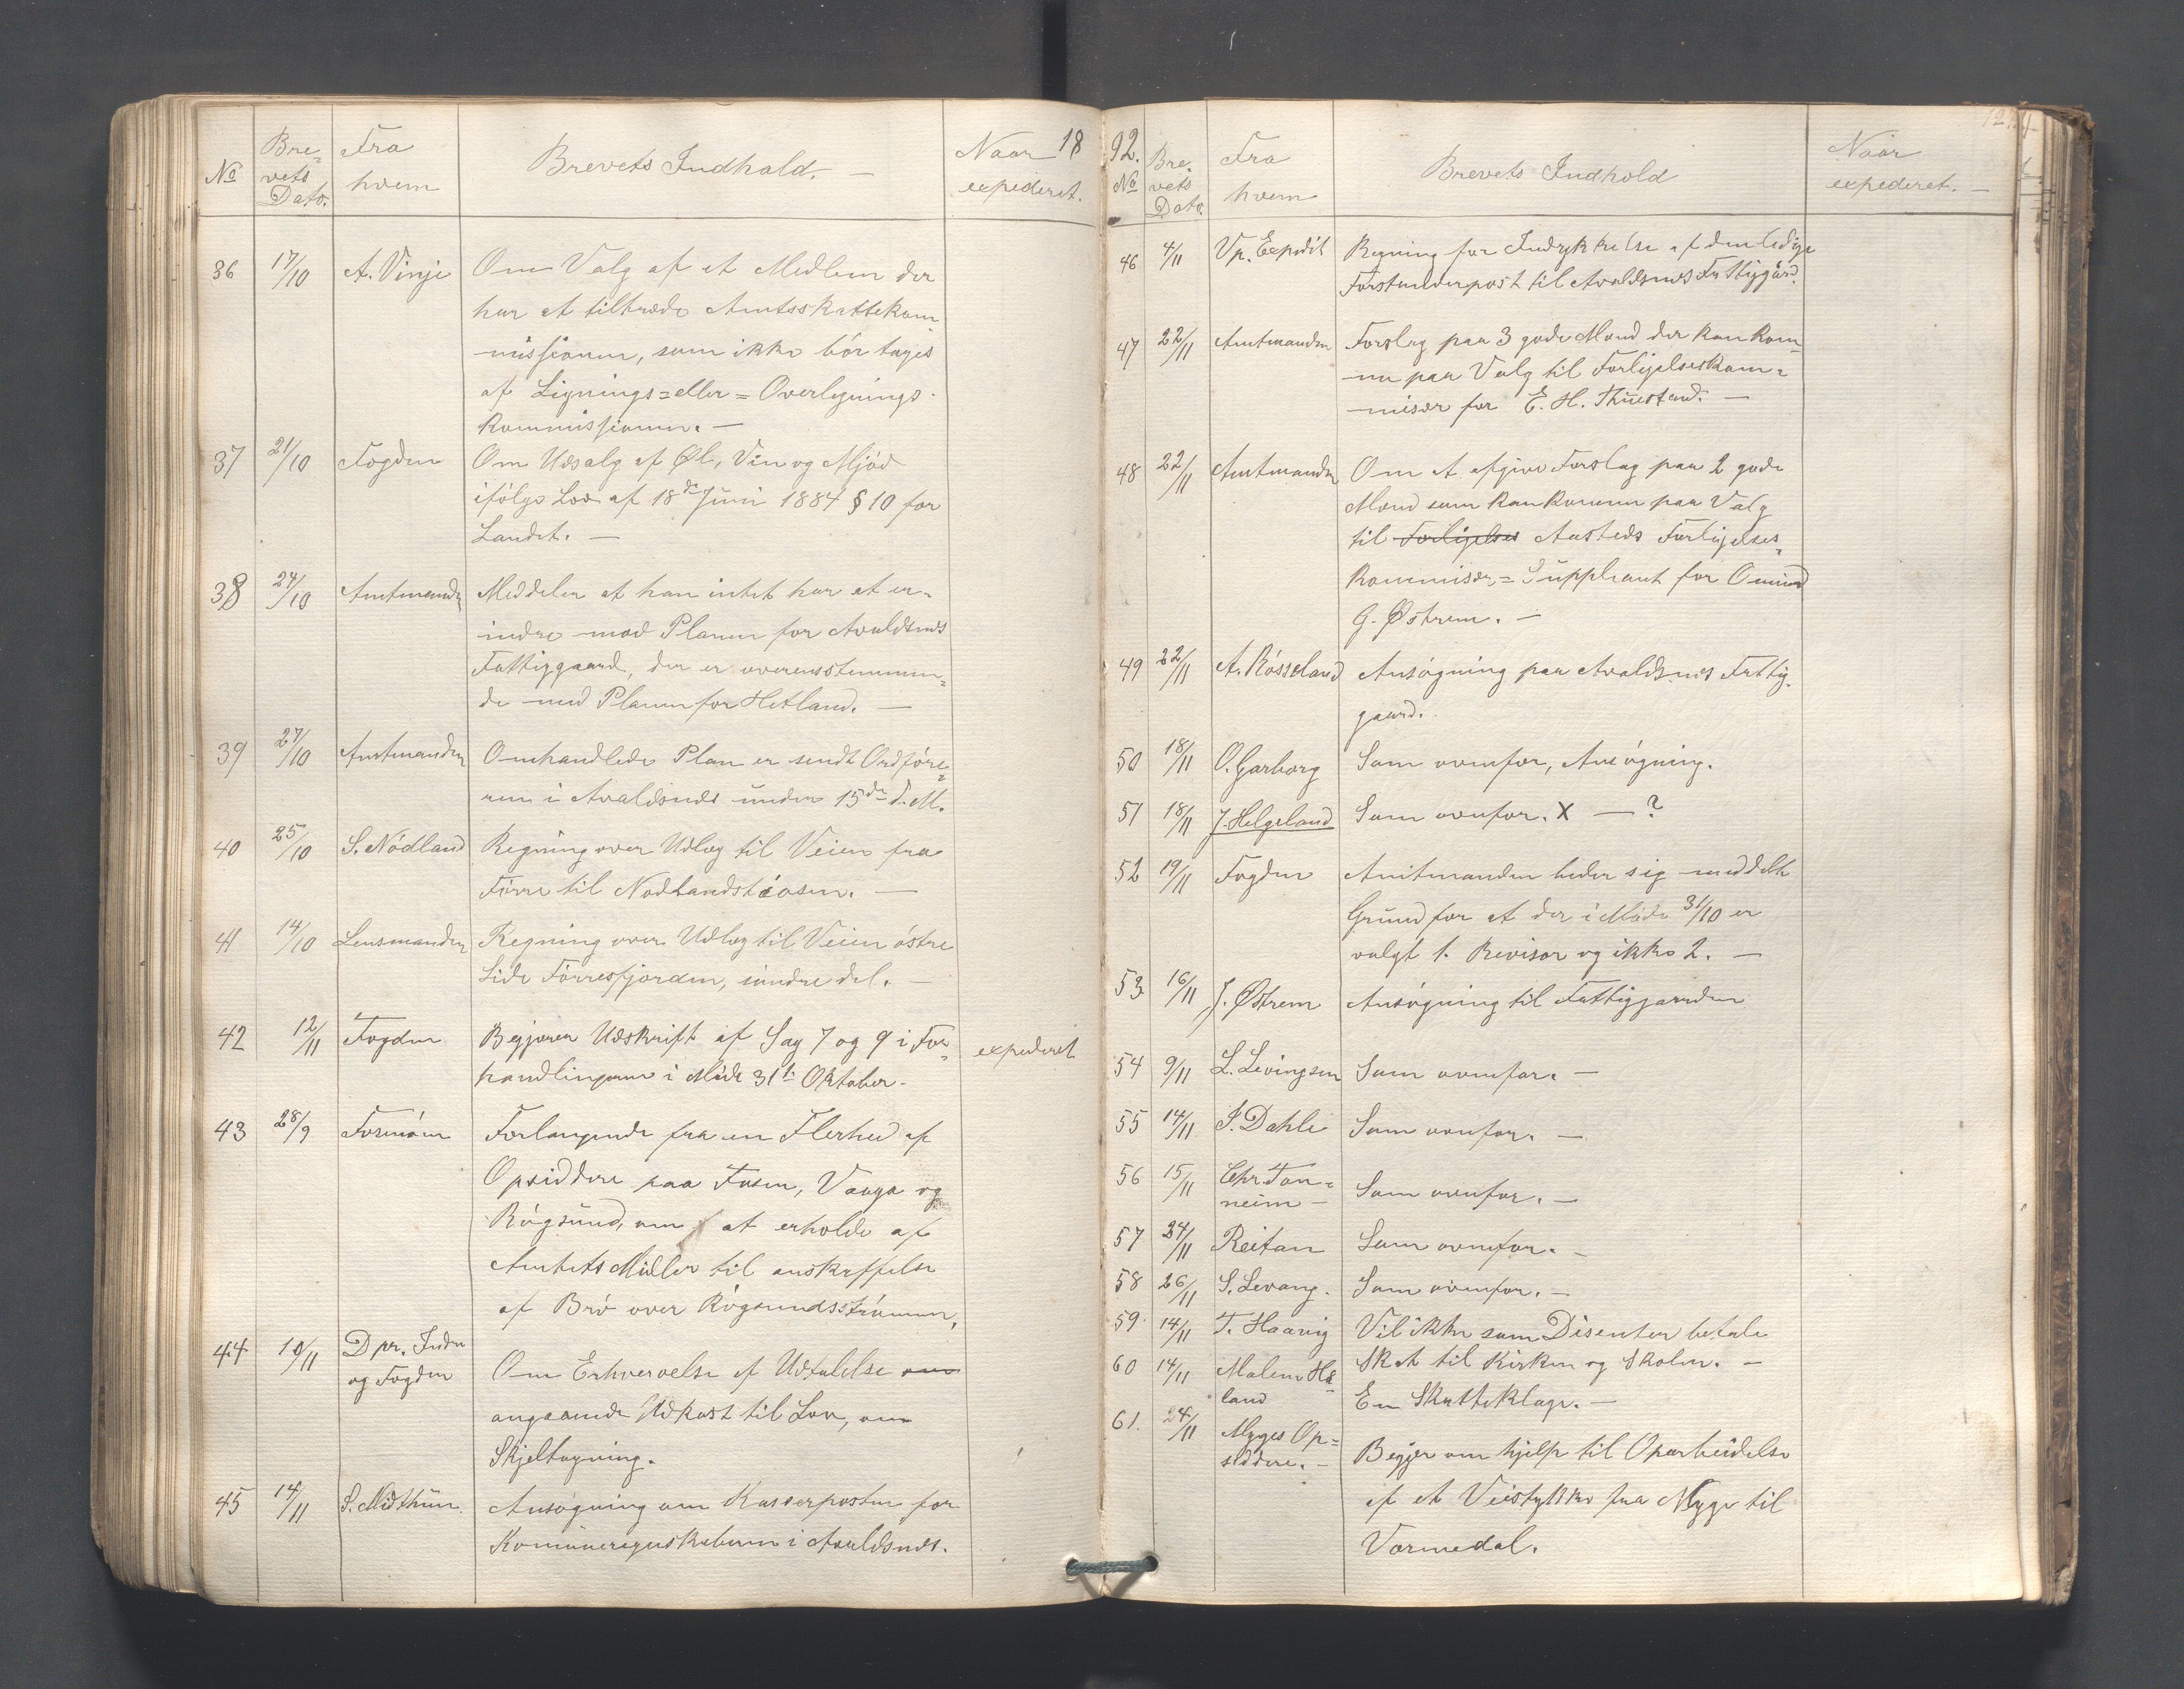 18
No Brevets Dato. Fra hvem Brevets Indhold. — Naar expederet.
36 17/10 A. Vinje Om Valg af et Medlem der
har at tiltræde Amtsskattekom
missionen, som ikke bör tages
af Lignings=eller=Overlignings-
kommissionen. —
37 21/10 Fogden Om Udsalg af Øl, Vin og Mjöd
ifölge Lov af 18de Juni 1884 § 10 for
Landet. —
38 24/10 Amtmanden Meddeler at han intet har at er-
indre mod Planen for Avaldsnes
Fattiggaard, der er overensstemmen=
de med Planen for Hetland. —
39 27/10 Amtmanden Omhandlede Plan er sendt Ordföre=
ren i Avaldsnes under 15de d. M.
40 25/10 S. Nödland Regning over Udlæg til Veien fra
Förre til Nodlandståosen. —
41 14/10 Lensmanden Regning over Udlæg til Veien östre
Side Förresfjorden, söndre del. —
42 12/11 Fogden Begjærer Udskrift af Sag 7 og 9 i For= expederet
handlingerne i Möde 31te Oktober.
43 28/9 Formöen Forlangende fra en Flerhed af
Opsiddere paa Fosen, Vaaga og
Rögsund, om at erholde af
Amtets Midler til anskaffelse
af Bro over Rögsundsströmmen,
44 10/11 Dpr. Indre
og Fogden Om Erhvervelse af Udtalelse om
angaaende Udkast til Lov, om
Skjeltogning.
45 14/11 S. Midthun. Ansögning om Kasserposten for
Komuneregnskaberne i Avaldsnes.
92.
No Brevets Dato. Fra hvem Brevets Indhold Naar expederet. —
46 4/11 Vp. Expedit Regning for Indrykkelse af den ledige
Forstanderpost til Avaldsnes Fattiggård.
47 22/11 Amtmanden Forslag paa 3 gode Mænd der kan kom=
me paa Valg til Forligelseskom=
misær for E. H. Thuestad. —
48 22/11 Amtmanden Om at afgive Forslag paa 2 gode
Mænd som kan komme paa Valg
til Forligelses Ansteds Forligelses=
kommisær=Suppleant for Omund
G. Østrem. —
49 22/11 A. Rösseland Ansögning paa Avaldsnes Fattig=
gaard.
50 18/11 O. Garborg Som ovenfor, Ansögning.
51 18/11 J. Helgeland Som ovenfor. X — ?
52 19/11 Fogden Amtmanden beder sig meddelt
Grund for at der i Möde 31/10 er
valgt 1. Revisor og ikke 2. —
53 16/11 J. Østrem Ansögning til Fattiggaarden
54 9/11 L. Levingsen Som ovenfor. —
55 14/11 I. Dahle Som ovenfor. —
56 15/11 Chr. Ton=
neim — Som ovenfor. —
57 24/11 Reitan Som ovenfor. —
58 26/11 S. Levang. Som ovenfor. —
59. 14/11 T. Haavig Vil ikke som Disenter betale
Skat til Kirken og Skolen. —
60 14/11 Malene Hå=
land En Skatteklage. —
61. 24/11 Mygес Op=
siddere. — Begjær om hjelp til Oparbeidelse
af et Veistykke fra Myge til
Vormedal.